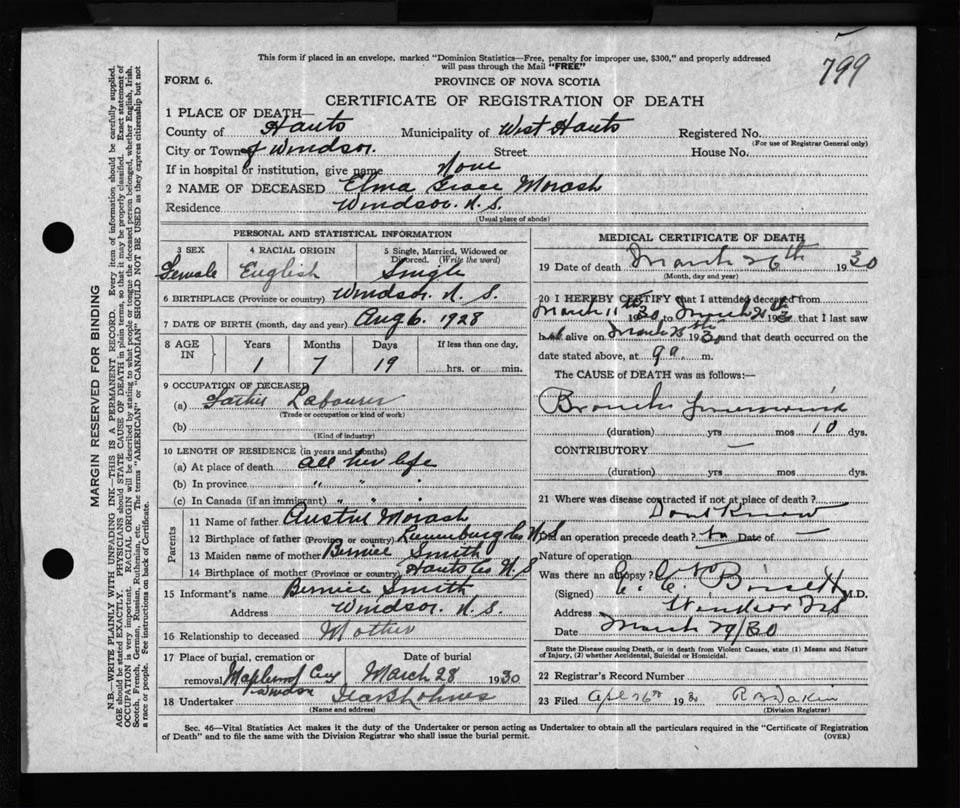 799
This form if placed in an envelope, marked "Dominion Statistics—Free, penalty for improper use, $300," and properly addressed
will pass through the Mail "FREE"
FORM 6. PROVINCE OF NOVA SCOTIA
CERTIFICATE OF REGISTRATION OF DEATH
1 PLACE OF DEATH—
County of Hants Municipality of West Hants Registered No.
(For use of Registrar General only)
City or Town of Windsor. Street House No.
If in hospital or institution, give name None
2 NAME OF DECEASED Elma Grace Morash
Residence Windsor. N.S.
(Usual place of abode)
PERSONAL AND STATISTICAL INFORMATION
3 SEX 4 RACIAL ORIGIN 5 Single, Married, Widowed or
Divorced. (Write the word)
Female English Single
6 BIRTHPLACE (Province or country) Windsor N.S.
7 DATE OF BIRTH (month, day and year) Aug 6. 1928
8 AGE IN Years Months Days If less than one day,
1 7 19 hrs. or min.
9 OCCUPATION OF DECEASED
(a) Father Labourer
(Trade or occupation or kind of work)
(b)
(Kind of industry)
10 LENGTH OF RESIDENCE (in years and months)
(a) At place of death all her life
(b) In province " " "
(c) In Canada (if an immigrant) " " "
Parents
11 Name of father Morash
12 Birthplace of father (Province or country) Lunenburg Co N.S
13 Maiden name of mother Bernice Smith
14 Birthplace of mother (Province or country) Hants Co N.S
15 Informant's name Bernice Smith
Address Windsor. N.S.
16 Relationship to deceased Mother
17 Place of burial, cremation or
removal Date of burial
Windsor March 28 1930
18 Undertaker
(Name and address)
MEDICAL CERTIFICATE OF DEATH
19 Date of death March 26th 1930
(Month, day and year)
20 I HEREBY CERTIFY that I attended deceased from
March 11th 1930 to March 26th 1930 that I last saw
h alive on March 25th 1930 and that death occurred on the
date stated above, at 9 a. m.
The CAUSE of DEATH was as follows:—
Broncho Pneumonia
(duration) yrs mos 10 dys.
CONTRIBUTORY —
(duration) yrs mos dys.
21 Where was disease contracted if not at place of death?
Dont Know
Did an operation precede death? no Date of —
Nature of operation
Was there an autopsy?
(Signed) Bissett M.D.
Address Windsor NS
Date March 29/30
State the Disease causing Death, or in death from Violent Causes, state (1) Means and Nature
of Injury, (2) whether Accidental, Suicidal or Homicidal.
22 Registrar's Record Number
23 Filed Apl 26th 1930 Dakin
(Division Registrar)
Sec. 46—Vital Statistics Act makes it the duty of the Undertaker or person acting as Undertaker to obtain all the particulars required in the "Certificate of Registration
of Death" and to file the same with the Division Registrar who shall issue the burial permit. (OVER)
MARGIN RESERVED FOR BINDING
N.B.—WRITE PLAINLY WITH UNFADING INK—THIS IS A PERMANENT RECORD. Every item of information should be carefully supplied.
AGE should be stated EXACTLY. PHYSICIANS should STATE CAUSE OF DEATH in plain terms, so that it may be properly classified. Exact statement of
OCCUPATION is very important. RACIAL ORIGIN will be described by stating to what people or tongue the deceased person belonged, whether English, Irish,
Scotch, French, German, Russian, Ruthenian, etc. The terms "AMERICAN" or "CANADIAN" SHOULD NOT BE USED as they express citizenship but not
a race or people. See instructions on back of Certificate.